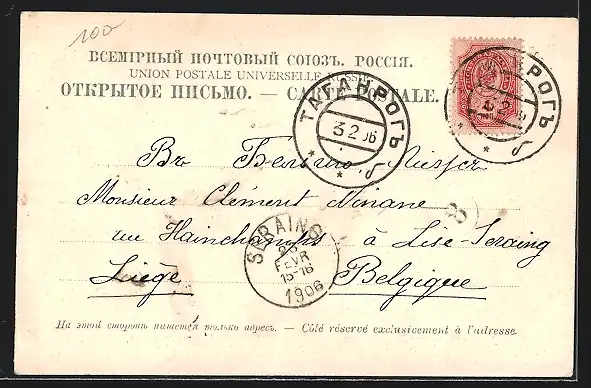 100
ВСЕМІРНЫЙ ПОЧТОВЫЙ СОЮЗЪ. РОССІЯ.
UNION POSTALE UNIVERSELLE. RUSSIE.
ОТКРЫТОЕ ПИСЬМО. — CARTE POSTALE.
ТАГАНРОГЪ
3 2 06
РОГЪ
Въ
Monsieur Clément Ninane
rue Hainchamps à Lise-Seraing
Liège Belgique
SERAING
FEVR
15-16
1906
На этой сторонѣ пишется только адресъ. — Côté réservé exclusivement à l'adresse.